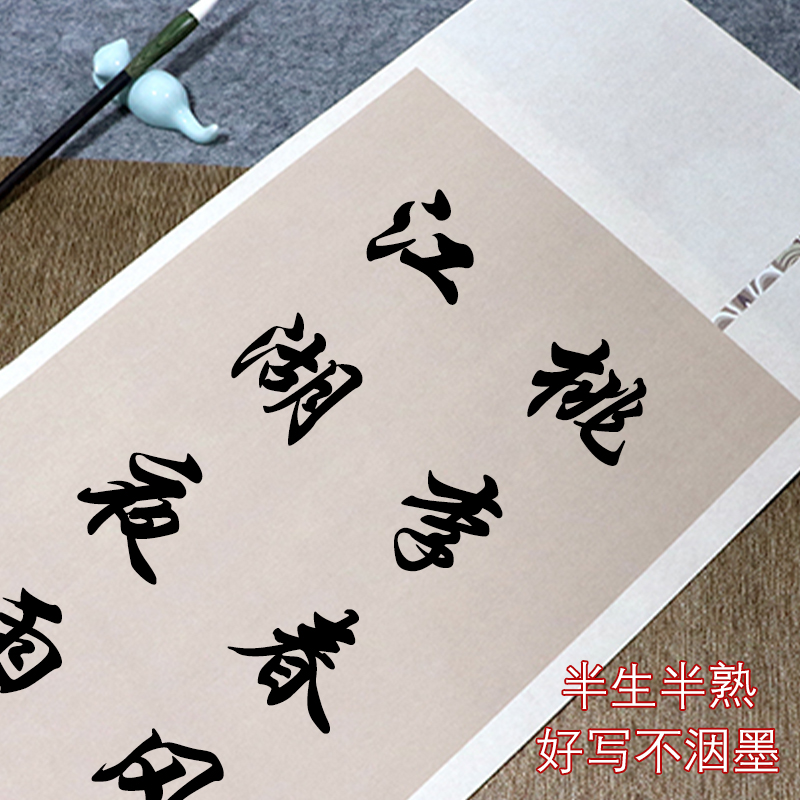 桃李春风
江湖夜雨
半生半熟
好写不洇墨